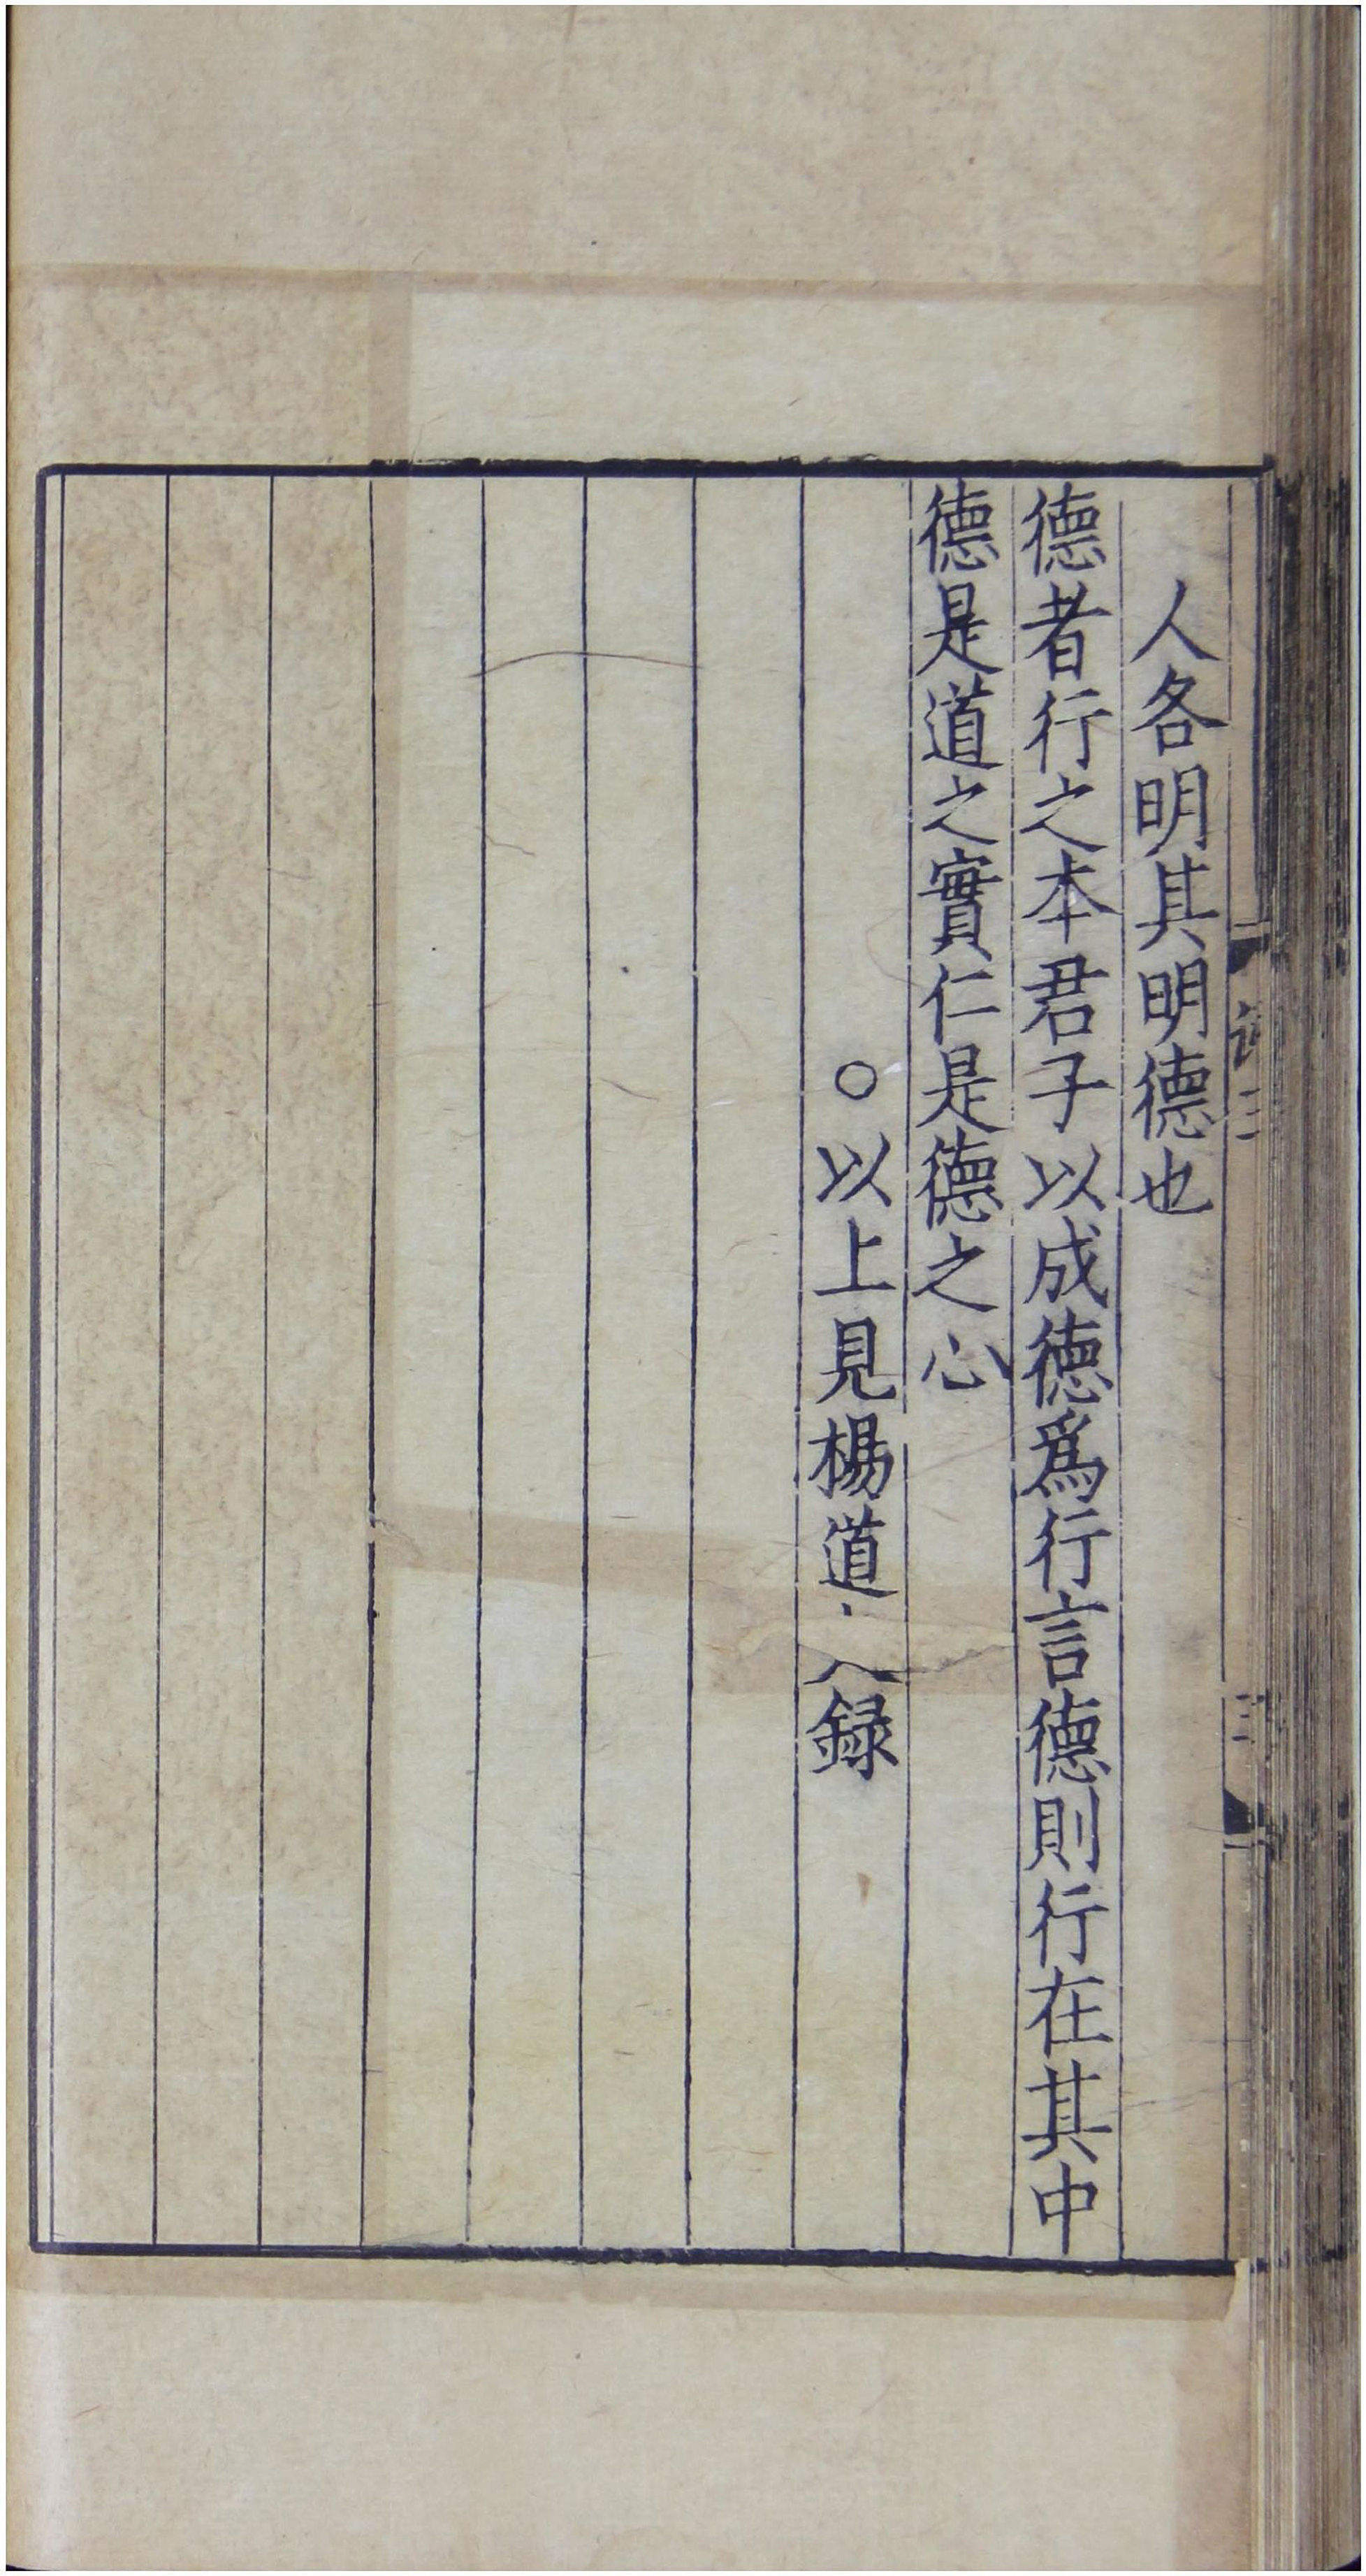 人各明其明德也
德者行之本君子以成德爲行言德則行在其中
德是道之實仁是德之心
○以上見楊道録